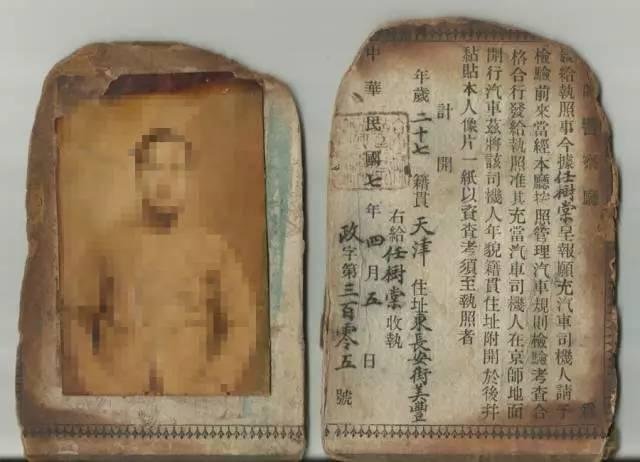 師警察廳
給執照事今據任樹棠呈報願充汽車司機人請予
檢驗前來當經本廳按照管理汽車規則檢驗考查合
格合行發給執照准其充當汽車司機人在京師地面
開行汽車茲將該司機人年貌籍貫住址附開於後并
黏貼本人像片一紙以資查考須至執照者
計開
年歲二十七 籍貫天津 住址東長安街美豐
右給任樹棠收執
中華民國七年四月五日
政字第三百零五號